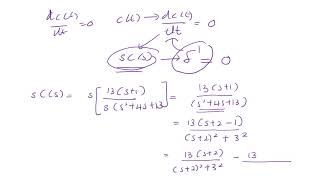 dc(t)/dt = 0   c(t) → dc(t)/dt = 0
sC(s) → δ^-1 = 0
sC(s) = s[13(s+1)/s(s²+4s+13)] = 13(s+1)/(s²+4s+13)
= 13(s+2-1)/(s+2)²+3²
= 13(s+2)/(s+2)²+3² - 13/